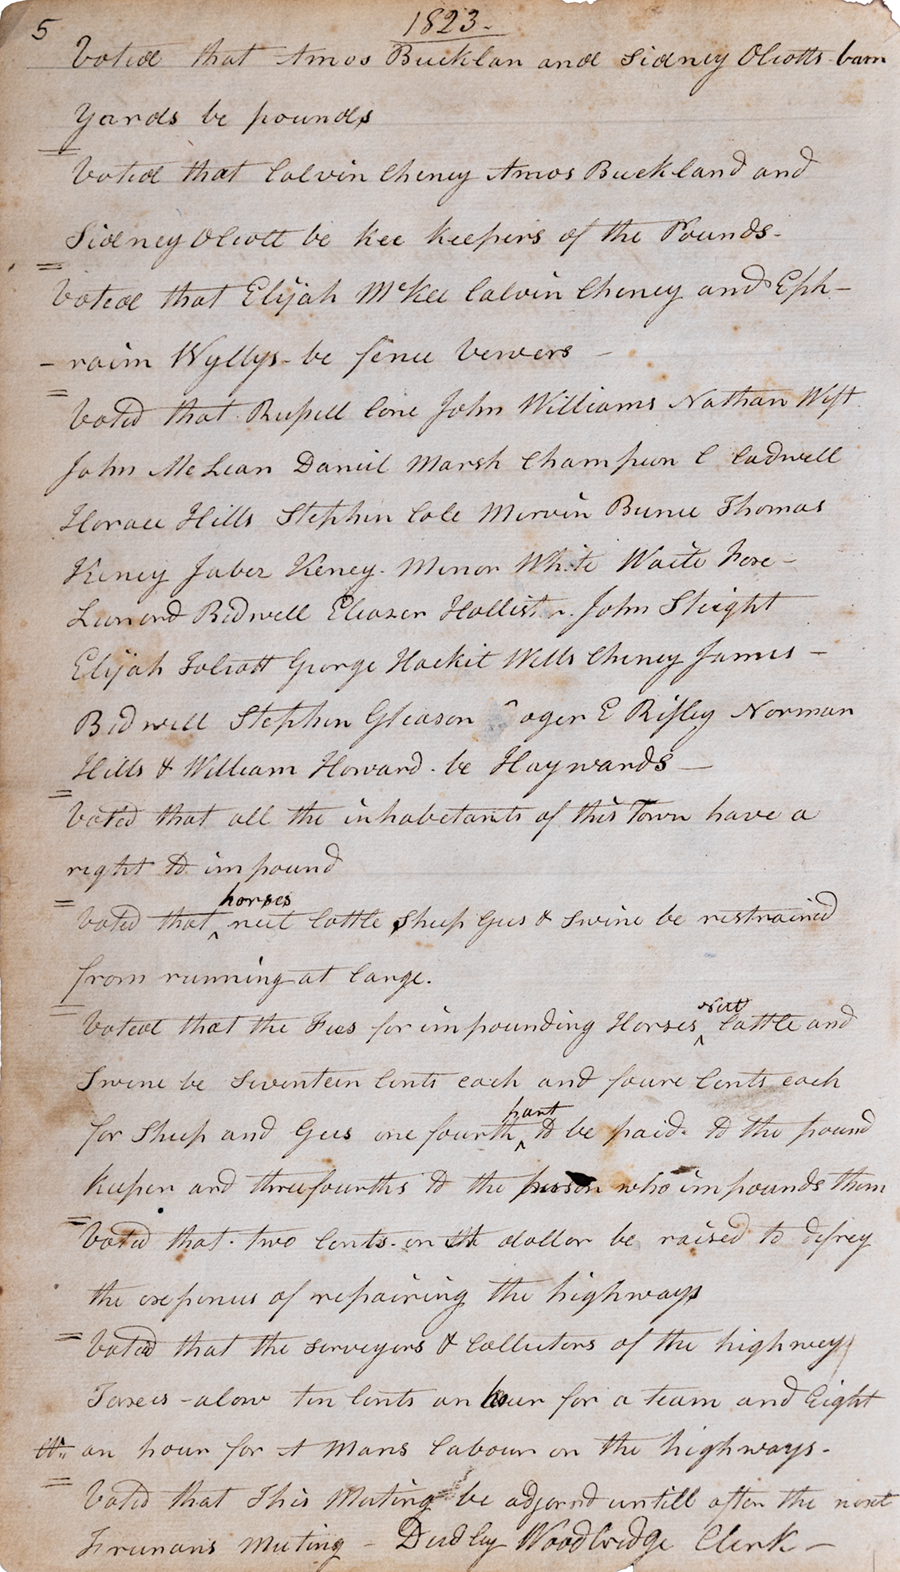 5 1823.
Voted that Amos Bucklan and Sidney Olcotts barn
yards be pounds
Voted that Calvin Cheney Amos Buckland and
Sidney Olcott be kee keepers of the Pounds-
Voted that Elijah McKee Calvin Cheney and Eph-
-raim Wyllys- be fence vewers -
Voted that Russell Cone John Williams Nathan West
John McLean Daniel Marsh Champion C Cadwell
Horace Hills Stephen Cole Mervin Bunce Thomas
Keney Jabez Keney. Menor White Waite
Leonord Bidwell Eleazer Hollister John Sleight
Elijah Tolcott George Hackit Wells Cheney James -
Bidwell Stephen Gleason oger E Risley Norman
Hills & William Howard. be Haywards -
Voted that all the inhabetants of this Town have a
right to impound
horses
Voted that ^ neet Cattle Sheep Gees & Swine be restrained
from running at large.
neet
Voted that the Fees for impounding Horses ^ Cattle and
Swine be Seventeen Cents each and foure Cents each
part
for Sheep and Gees one fourth ^ to be paid- to the pound
keeper and three fourths to the person who impounds them
Voted that. two Cents. on the dollar be raised to defrey
the expences of repairing the highways
Voted that the surveyors & Collectors of the highway
Taxes - alow ten Cents an hour for a team and Eight
an hour for A Mans labour on the highways-
Voted that This Meeting be adjornd untill after the next
Freemans Meeting - Dudley Woodbridge Clerk -